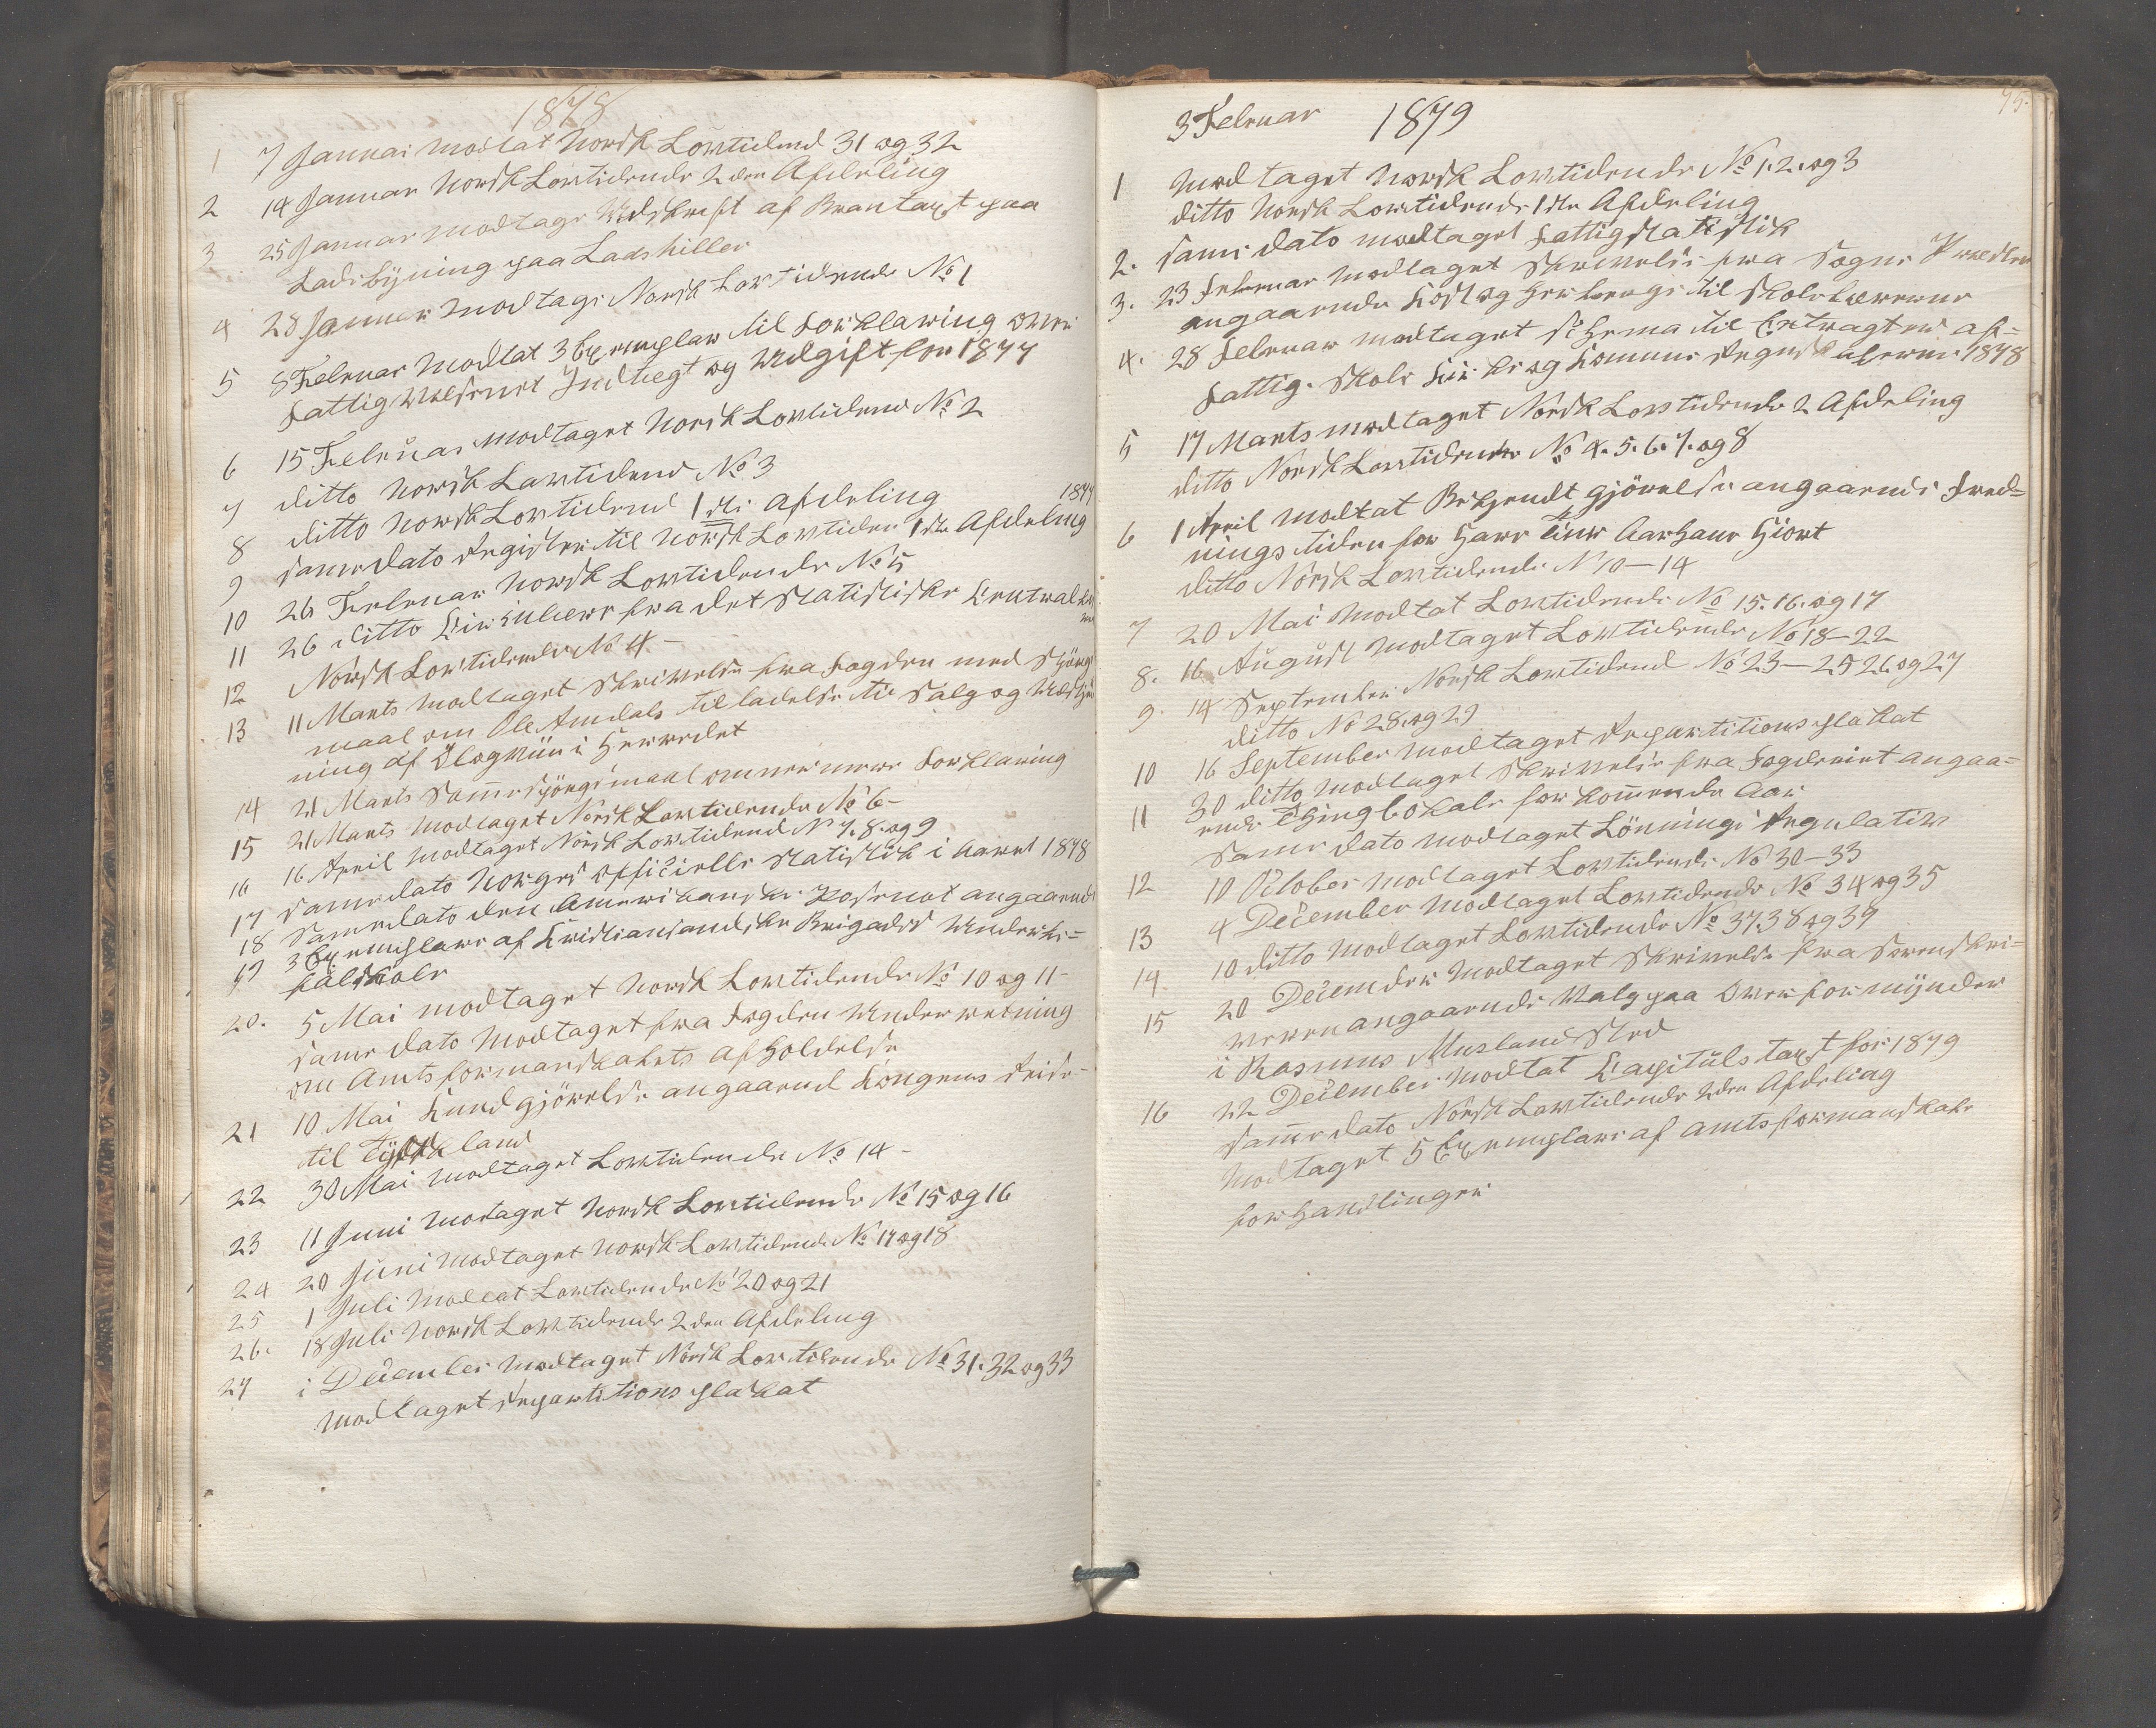 1878
1 7 Januar Modtat Norsk Lovtidend 31 og 32
2 14 Januar Norsk Lovtidende 2den Afdeling
3 25 Januar Modtage Udskreft af Brantaxt paa
Ladebyning paa Ladshiller
4 28 Januar Modtage Norsk Lovtidende No 1
5 8 Februar Modtat 3 Exemplar til Forklaring over
Fattigvæsenet Indtegt og Udgift for 1877
6 15 Februar Modtaget Norsk Lovtidend No 2
7 ditto Norsk Lavtidend No 3
8 ditto Norsk Lovtidend 1ste Afdeling
9 Same dato Register til Norsk Lovtiden 1ste Afdeling 1877
10 26 Februar Norsk Lovtidende No 5
11 26 ditto Cirkulere fra det Statistiske Centralkon
12 Norsk Lovtidende No 4 -
13 11 Marts Modtaget Skrivelse fra Fogden med Spörgs
maal om Ole Amdals tilladelse til Salg og Udskjæn
ning af Ölogviin i Herredet
14 21 Marts Same Spörgsmaal om nermere Forklaring
15 21 Marts Modtaget Norsk Lovtidende No 6 -
16 16 April Modtaget Norsk Lovtidend No 7. 8. og 9
17 Same dato Norges Officielle Statistik i Aaret 1878
18 Same dato den Amerikanske angaaende
19 3 Exemplare af Kristiansandske Brigades Underbe=
falskole
20. 5 Mai modtaget Norsk Lovtidende No 10 og 11 -
Same dato Modtaget fra Fogden Underretning
om Amtsformandskabets Afholdelse
21 10 Mai Kundgjörelse angaaend Kongens Reise
til Tydskland
22 30 Mai modtaget Lovtidende No 14 -
23 11 Juni Motaget Norsk Lovtidende No 15 og 16
24 20 Juni Modtaget Norsk Lovtidende No 17 og 18
25 1 Juli Modtat Lovtidende No 20 og 21
26. 18 Juli Norsk Lovtidende 2den Afdeling
27 i December Modtaget Norsk Lovtidende No 31. 32 og 33
Modtaget Repartitions plakat
75.
3 Februar 1879
1 Modtaget Norsk Lovtidende No 1. 2. og 3
ditto Norsk Lovtidende 1ste Afdeling
2. Same dato modtaget Fattigstatistik
3. 23 Februar Modtaget Skrivelse fra Sogne Præsten
angaaende Kost og Herberge til Skolelærerne
4. 28 Februar modtaget Schema til Extragter af=
Fattig. Skole Kirke og Komune Regnskaberne 1878
5 17 Marts modtaget Norsk Lovtidende 2 Afdeling
ditto Norsk Lovtidende No 4. 5. 6. 7. og 8
6 1 April Modtat Bekjendtgjörelse angaaende Fred=
nings tiden for Hare Tiur Aarhane Hiort
ditto Norsk Lovtidende N 10 - 14
7 20 Mai Modtat Lovtidende No 15. 16. og 17
8. 16 August Modtaget Lovtidende No 18 - 22
9. 14 September Norsk Lovtidend No 23 - 25 26. og 27
ditto No 28. og 29
10 16 September Modtaget Repartitions plakat
11 30 ditto Modtaget Skrivelse fra Fogderiet angaa=
ende Thinglokale for komende Aar
Same dato Modtaget Lönnings Regulativ
12 10 October Modtaget Lovtidende No 30 - 33
13 4 December Modtaget Lovtidende No 34 og 35
14 10 ditto Modtaget Lovtidende No 37. 38 og 39
15 20 December Modtaget Skrivelse fra Sorenskri=
veren angaaende Valg paa Over formynder
i Rasmus Mæsland Sted
16 22 December Modtat Kapitulstaxt for 1879
Same dato Norsk Lovtidende 2den Afdeling
Modtaget 5 Exemplare af amtsformandskabs
forhandlinger